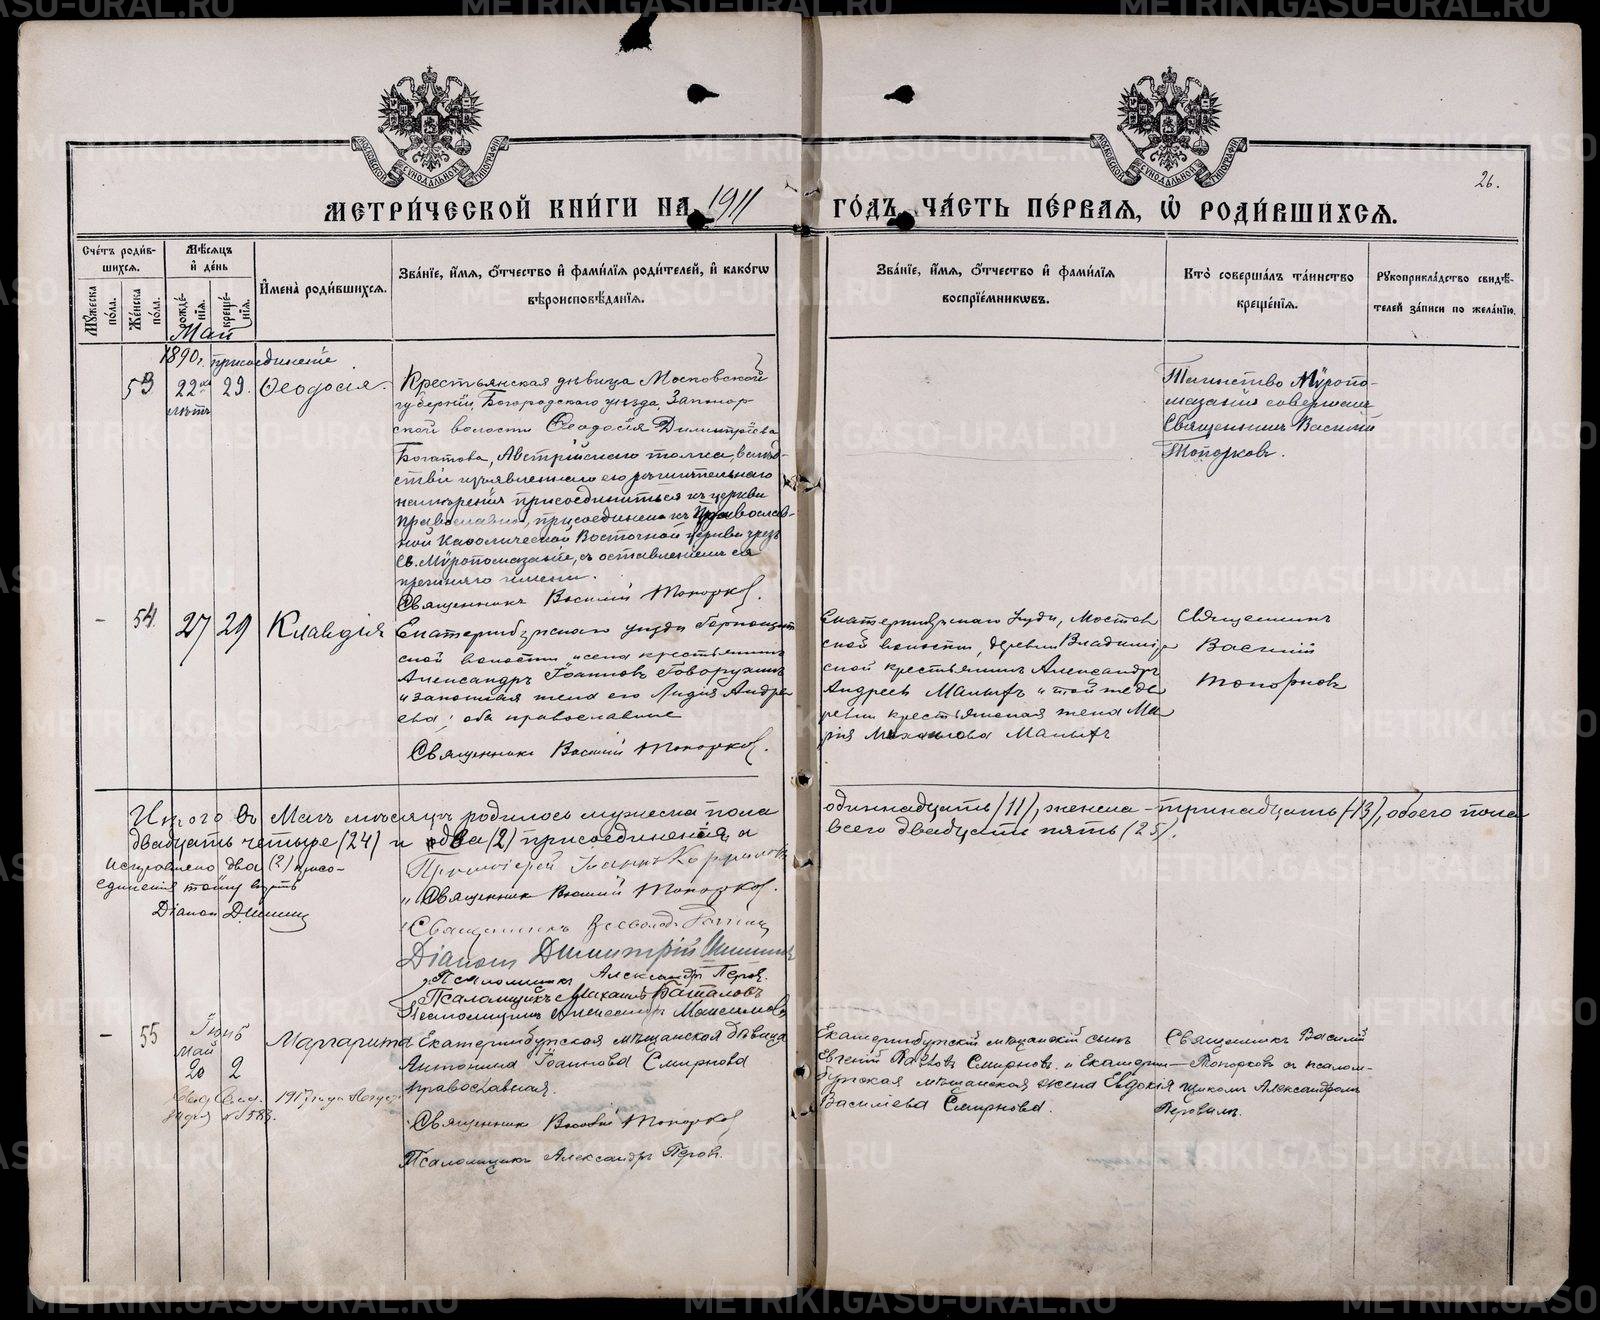 МЕТРИ́ЧЕСКОЙ КНИ́ГИ НА 1911 ГО́ДЪ, ЧА́СТЬ ПЕ́РВАЯ, Ѡ҆ РОДИ́ВШИХСѦ.
26.
Сче́тъ роди́в-
шихсѧ.
Мꙋ́жеска по́ла.
Же́нска по́ла.
Мѣ́сѧцъ
и҆ де́нь
рожде́-
нїѧ.
креще́-
нїѧ.
И҆мена̀ роди́вшихсѧ.
Зва́нїе, и҆́мѧ, ѻ҆́тчество и҆ фами́лїѧ роди́телей, и҆ како́гѡ
вѣроисповѣ́данїѧ.
Зва́нїе, и҆́мѧ, ѻ҆́тчество и҆ фами́лїѧ
воспрїе́мникѡвъ.
Кто̀ соверша́лъ та́инство
креще́нїѧ.
Рꙋкоприкла́дство свидѣ́-
телей за́писи по жела́нїю.
Май
1890 г. присоединенiе
53
22
лѣтъ
29.
Ѳеодосiя.
Крестьянская дѣвица Московской
губернiи, Богородскаго уѣзда, Запонор-
ской волости Ѳеодосiя Димитрiева
Богатова, Австрiйскаго толка, вслѣд-
ствiе изъявленнаго ею рѣшительнаго
намѣренiя присоединиться къ церкви
православной, присоединена къ Православ-
ной Каѳолической Восточной церкви чрезъ
Св. Мѵропомазанiе, съ оставленiемъ ея
прежняго имени.
Священникъ Василiй Топорковъ.
Таинство Мѵропо-
мазанiя совершилъ
Священникъ Василiй
Топорковъ.
-
54.
27
29
Клавдiя
Екатеринбургскаго уѣзда
ской волости и села крестьянинъ
Александръ Iоанновъ Говорухинъ
и законная жена его Лидiя Андре
ева; оба православные
Священникъ Василiй Топорковъ.
Екатеринбургскаго уѣзда, Мостов
ской волости, деревни Владимiр
ской крестьянинъ Александръ
Андреевъ Малыхъ и той же де
ревни крестьянская жена Ма
рiя Михайлова Малыхъ
Священникъ
Василiй
Топорковъ
Итого въ Маѣ мѣсяцѣ родилось мужеска пола одиннадцать (11), женска - тринадцать (13), обоего пола
двадцать четыре (24) и два (2) присоединенiя а всего двадцать пять (25).
Исправлено два (2) присо-
единенiя тому вѣрить
Дiаконъ
Протоiерей Iоаннъ
Священникъ Василiй Топорковъ.
Священникъ Всеволодъ
Дiаконъ Димитрiй
Псаломщикъ Александръ Перовъ.
Псаломщикъ Михаилъ Баталовъ
Псаломщикъ Александръ Максимовъ
-
55
Iюнь
Май
20
2
Маргарита
Екатеринбургская мѣщанская дѣвица
Антонина Iоаннова Смирнова
православная.
Священникъ Василiй Топорковъ
Псаломщикъ Александръ Перовъ.
1917 года Август
№ 588.
Екатеринбургскiй мѣщанскiй сынъ
Евгенiй Павловъ Смирновъ и Екатерин-
бургская мѣщанская жена Евдокiя
Василiева Смирнова.
Священникъ Василiй
Топорковъ съ псалом-
щикомъ Александромъ
Перовымъ.
METRIKI.GASO-URAL.RU